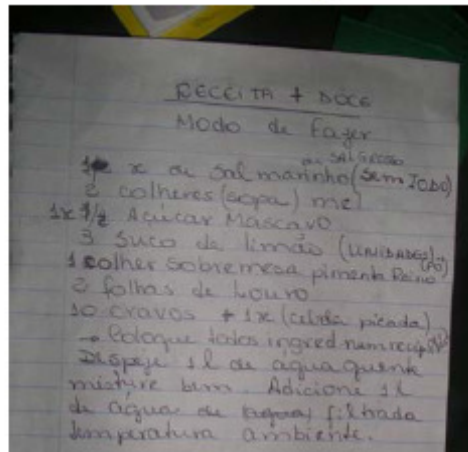 RECEITA + DOCE
Modo de Fazer
ou SAL GROSSO
1 x de Sal marinho (Sem IODO)
2 colheres (sopa) mel
1x 1/2 Açúcar Mascavo
3 suco de limão (UNIDADES)
1 colher sobremesa pimenta Reino (PÓ)
2 folhas de Louro
10 cravos + 1x (cebola picada)
→ Coloque todos ingred num recip
Despeje 1 l de água quente
misture bem. Adicione 1 l
de água de filtrada
temperatura ambiente.